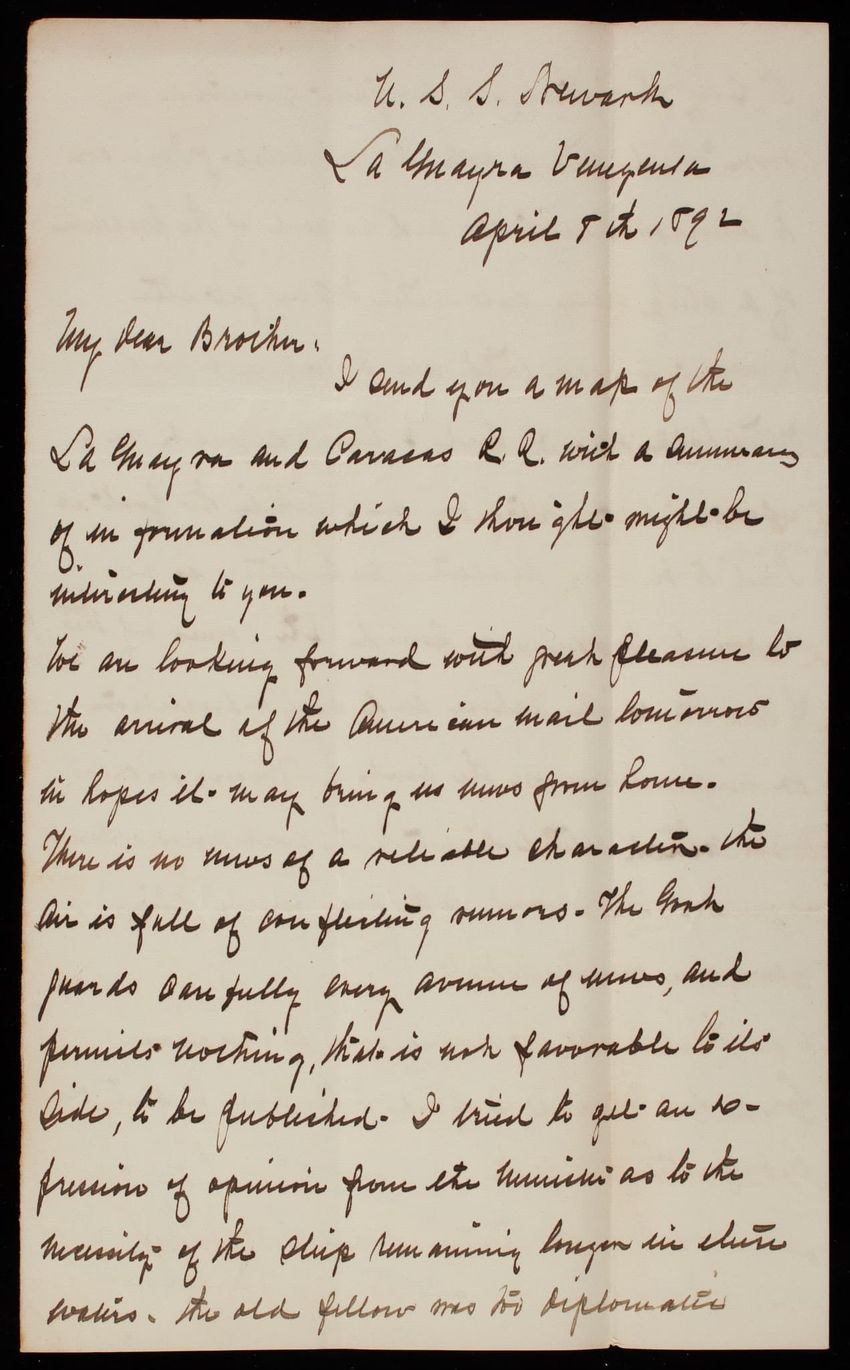 U. S. S. Newark
La Guayra Venezuela
April 8th 1892
My dear Brother:
I send you a map of the
La Guayra and Caracas R. R. with a summary
of information which I thought might be
interesting to you.
We are looking forward with great pleasure to
the arrival of the American mail tomorrow
in hopes it may bring us news from home.
There is no news of a reliable character. the
air is full of conflicting rumors. The Govt
guards carefully every avenue of news, and
permits nothing, that is not favorable to its
side, to be published. I tried to get an ex-
pression of opinion from the Minister as to the
necessity of the ship remaining longer in these
waters. the old fellow was too diplomatic